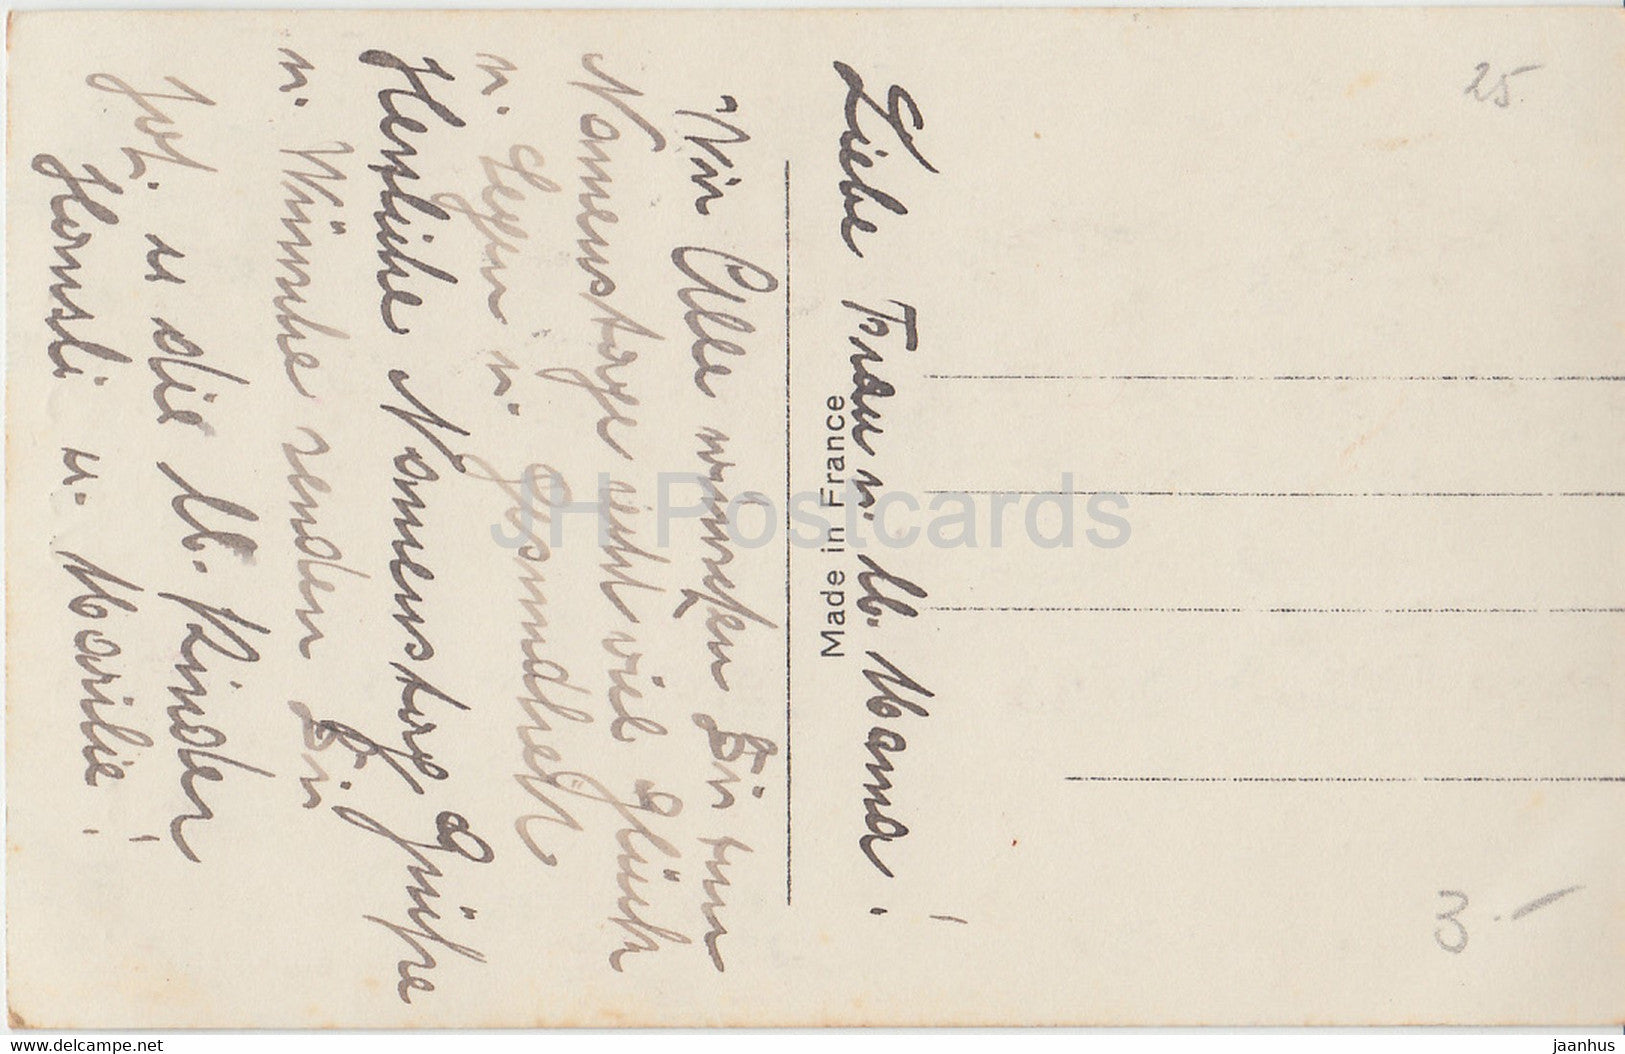 Liebe Frau u. lb. Mama!
Wir Alle wünschen Dir zum
Namenstage recht viel Glück
u. Segen u. Gesundheit
Herzliche Namenstag Grüße
u. Wünsche senden Dir
Jos. u die lb. Kinder
Hansli u. Marilie!
Made in France
25
3.-
JH Postcards
www.delcampe.net
jaanhus